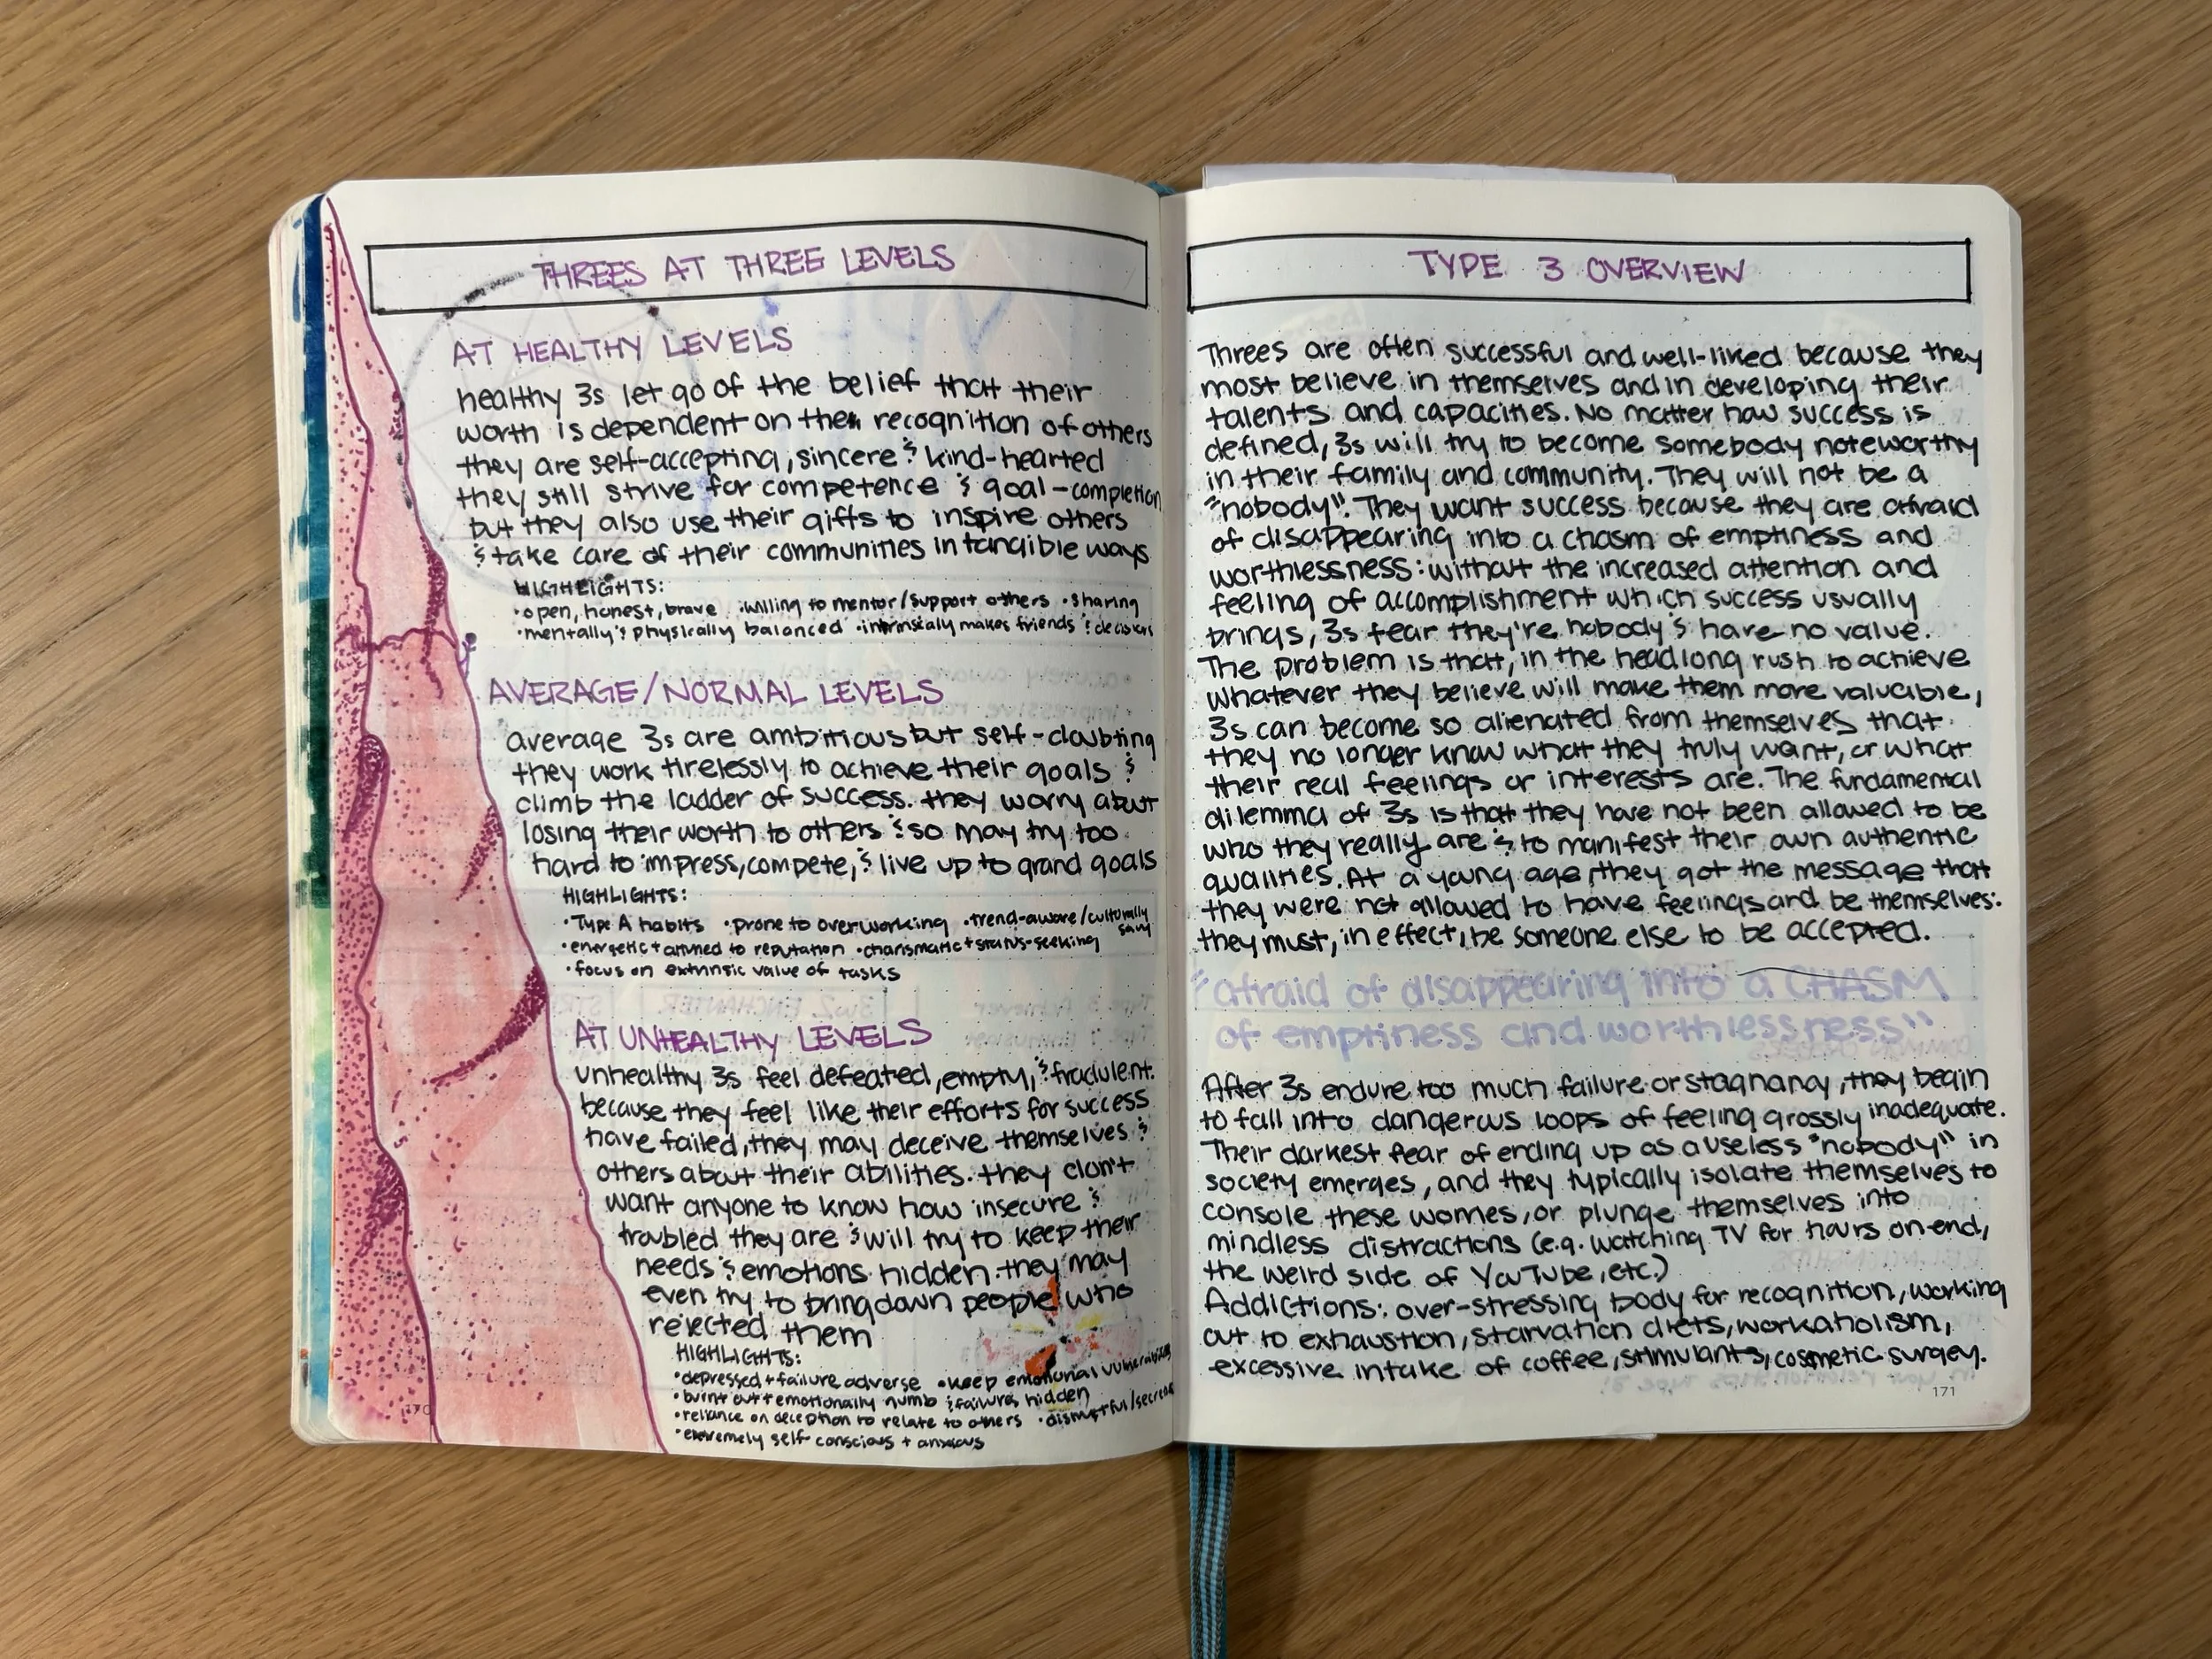 THREES AT THREE LEVELS
AT HEALTHY LEVELS
healthy 3s let go of the belief that their
worth is dependent on the recognition of others
they are self-accepting, sincere & kind-hearted
they still strive for competence & goal-completion
but they also use their gifts to inspire others
& take care of their communities in tangible ways
HIGHLIGHTS:
•open, honest, brave •willing to mentor/support others •sharing
•mentally & physically balanced •intrinsicaly makes friends &
AVERAGE/NORMAL LEVELS
average 3s are ambitious but self-doubting
they work tirelessly to achieve their goals &
climb the ladder of success. they worry about
losing their worth to others & so may try too
hard to impress, compete, & live up to grand goals
HIGHLIGHTS:
•Type A habits •prone to overworking •trend-aware/culturally
savvy
•energetic + attuned to reputation •charismatic + status-seeking
•focus on extrinsic value of tasks
AT UNHEALTHY LEVELS
unhealthy 3s feel defeated, empty, & fradulent.
because they feel like their efforts for success
have failed, they may deceive themselves &
others about their abilities. they don't
want anyone to know how insecure &
troubled they are & will try to keep their
needs & emotions hidden. they may
even try to bring down people who
rejected them
HIGHLIGHTS:
•depressed + failure adverse •keep emotional vulnerabilities
•burnt out + emotionally numb & failures hidden
•reliance on deception to relate to others •distrustful/secretive
•extremely self-conscious + anxious
170
TYPE 3 OVERVIEW
Threes are often successful and well-liked because they
most believe in themselves and in developing their
talents and capacities. No matter how success is
defined, 3s will try to become somebody noteworthy
in their family and community. They will not be a
"nobody". They want success because they are afraid
of disappearing into a chasm of emptiness and
worthlessness: without the increased attention and
feeling of accomplishment which success usually
brings, 3s fear they're nobody & have no value.
The problem is that, in the headlong rush to achieve
whatever they believe will make them more valuable,
3s can become so alienated from themselves that
they no longer know what they truly want, or what
their real feelings or interests are. The fundamental
dilemma of 3s is that they have not been allowed to be
who they really are & to manifest their own authentic
qualities. At a young age, they got the message that
they were not allowed to have feelings and be themselves:
they must, in effect, be someone else to be accepted.
"afraid of disappearing into a CHASM
of emptiness and worthlessness"
After 3s endure too much failure or stagnancy, they begin
to fall into dangerous loops of feeling grossly inadequate.
Their darkest fear of ending up as a useless "nobody" in
society emerges, and they typically isolate themselves to
console these worries, or plunge themselves into
mindless distractions (e.g. watching TV for hours on end,
the weird side of YouTube, etc.)
Addictions: over-stressing body for recognition, working
out to exhaustion, starvation diets, workaholism,
excessive intake of coffee, stimulants, cosmetic surgey.
171